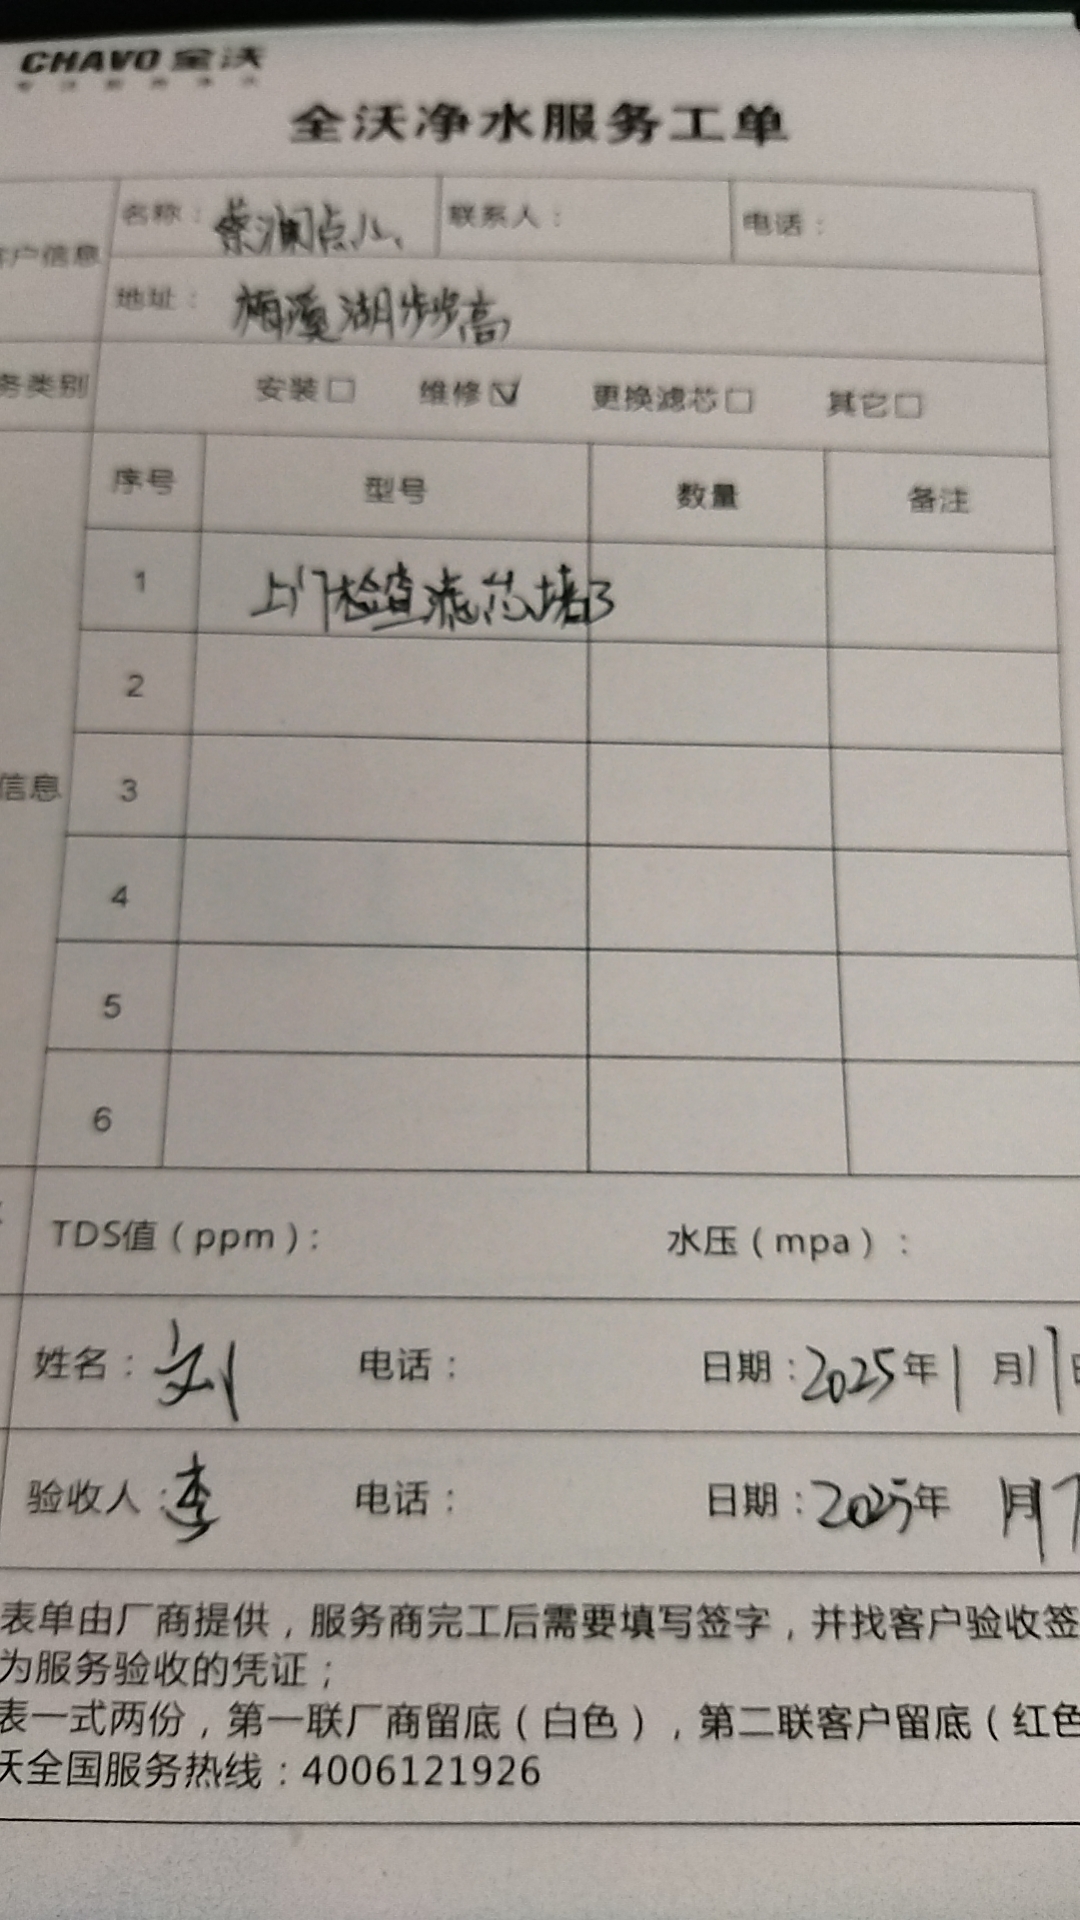 CHAVO 全沃
全沃净水服务工单
客户信息
名称：蔡澜点心
联系人：
电话：
地址：梅溪湖步步高
务类别 安装□ 维修☑ 更换滤芯□ 其它□
序号 型号 数量 备注
1 上门检查滤芯堵了
2
信息
3
4
5
6
TDS值（ppm）： 水压（mpa）：
姓名：刘 电话： 日期：2025年1月11日
验收人：李 电话： 日期：2025年 月
表单由厂商提供，服务商完工后需要填写签字，并找客户验收签
为服务验收的凭证；
表一式两份，第一联厂商留底（白色），第二联客户留底（红色
沃全国服务热线：4006121926